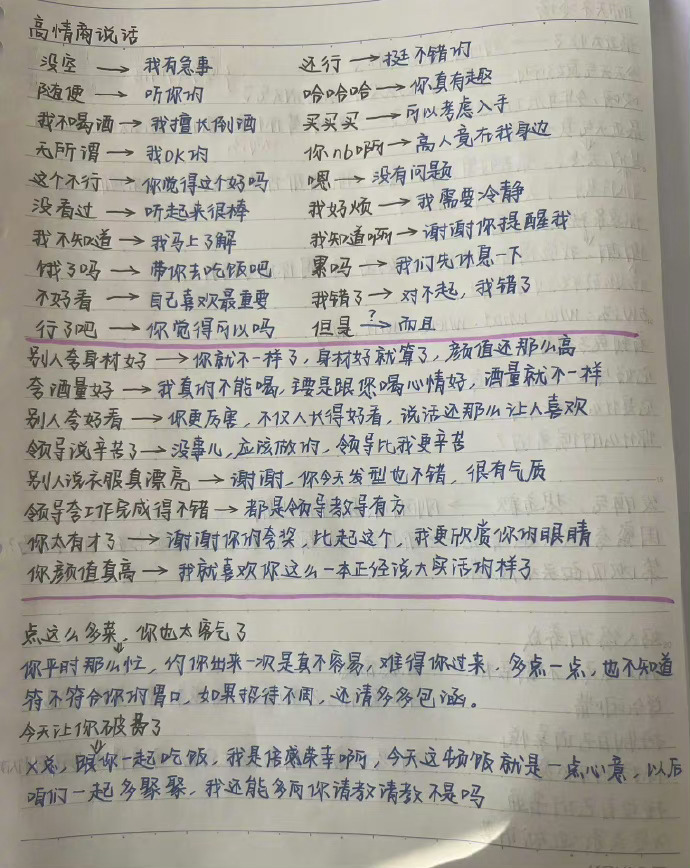 高情商说话
没空 → 我有急事 还行 → 挺不错的
随便 → 听你的 哈哈哈 → 你真有趣
我不喝酒 → 我擅长倒酒 买买买 → 可以考虑入手
无所谓 → 我OK的 你nb啊 → 高人竟在我身边
这个不行 → 你觉得这个好吗 嗯 → 没有问题
没看过 → 听起来很棒 我好烦 → 我需要冷静
我不知道 → 我马上了解 我知道啊 → 谢谢你提醒我
饿了吗 → 带你去吃饭吧 累吗 → 我们先休息一下
不好看 → 自己喜欢最重要 我错了 → 对不起，我错了
行了吧 → 你觉得可以吗 但是 ?→ 而且
别人夸身材好 → 你就不一样了，身材好就算了，颜值还那么高
夸酒量好 → 我真的不能喝，主要是跟您喝心情好，酒量就不一样
别人夸好看 → 你更厉害，不仅人长得好看，说话还那么让人喜欢
领导说辛苦了 → 没事儿，应该做的，领导比我更辛苦
别人说衣服真漂亮 → 谢谢，你今天发型也不错，很有气质
领导夸工作完成得不错 → 都是领导教导有方
你太有才了 → 谢谢你的夸奖，比起这个，我更欣赏你的眼睛
你颜值真高 → 我就喜欢你这么一本正经说大实话的样子
点这么多菜，你也太客气了
↓
你平时那么忙，约你出来一次是真不容易，难得你过来，多点一点，也不知道
符不符合你的胃口，如果招待不周，还请多多包涵。
今天让你破费了
↓
X总，跟你一起吃饭，我是倍感荣幸啊，今天这顿饭就是一点心意，以后
咱们一起多聚聚，我还能多向你请教请教不是吗